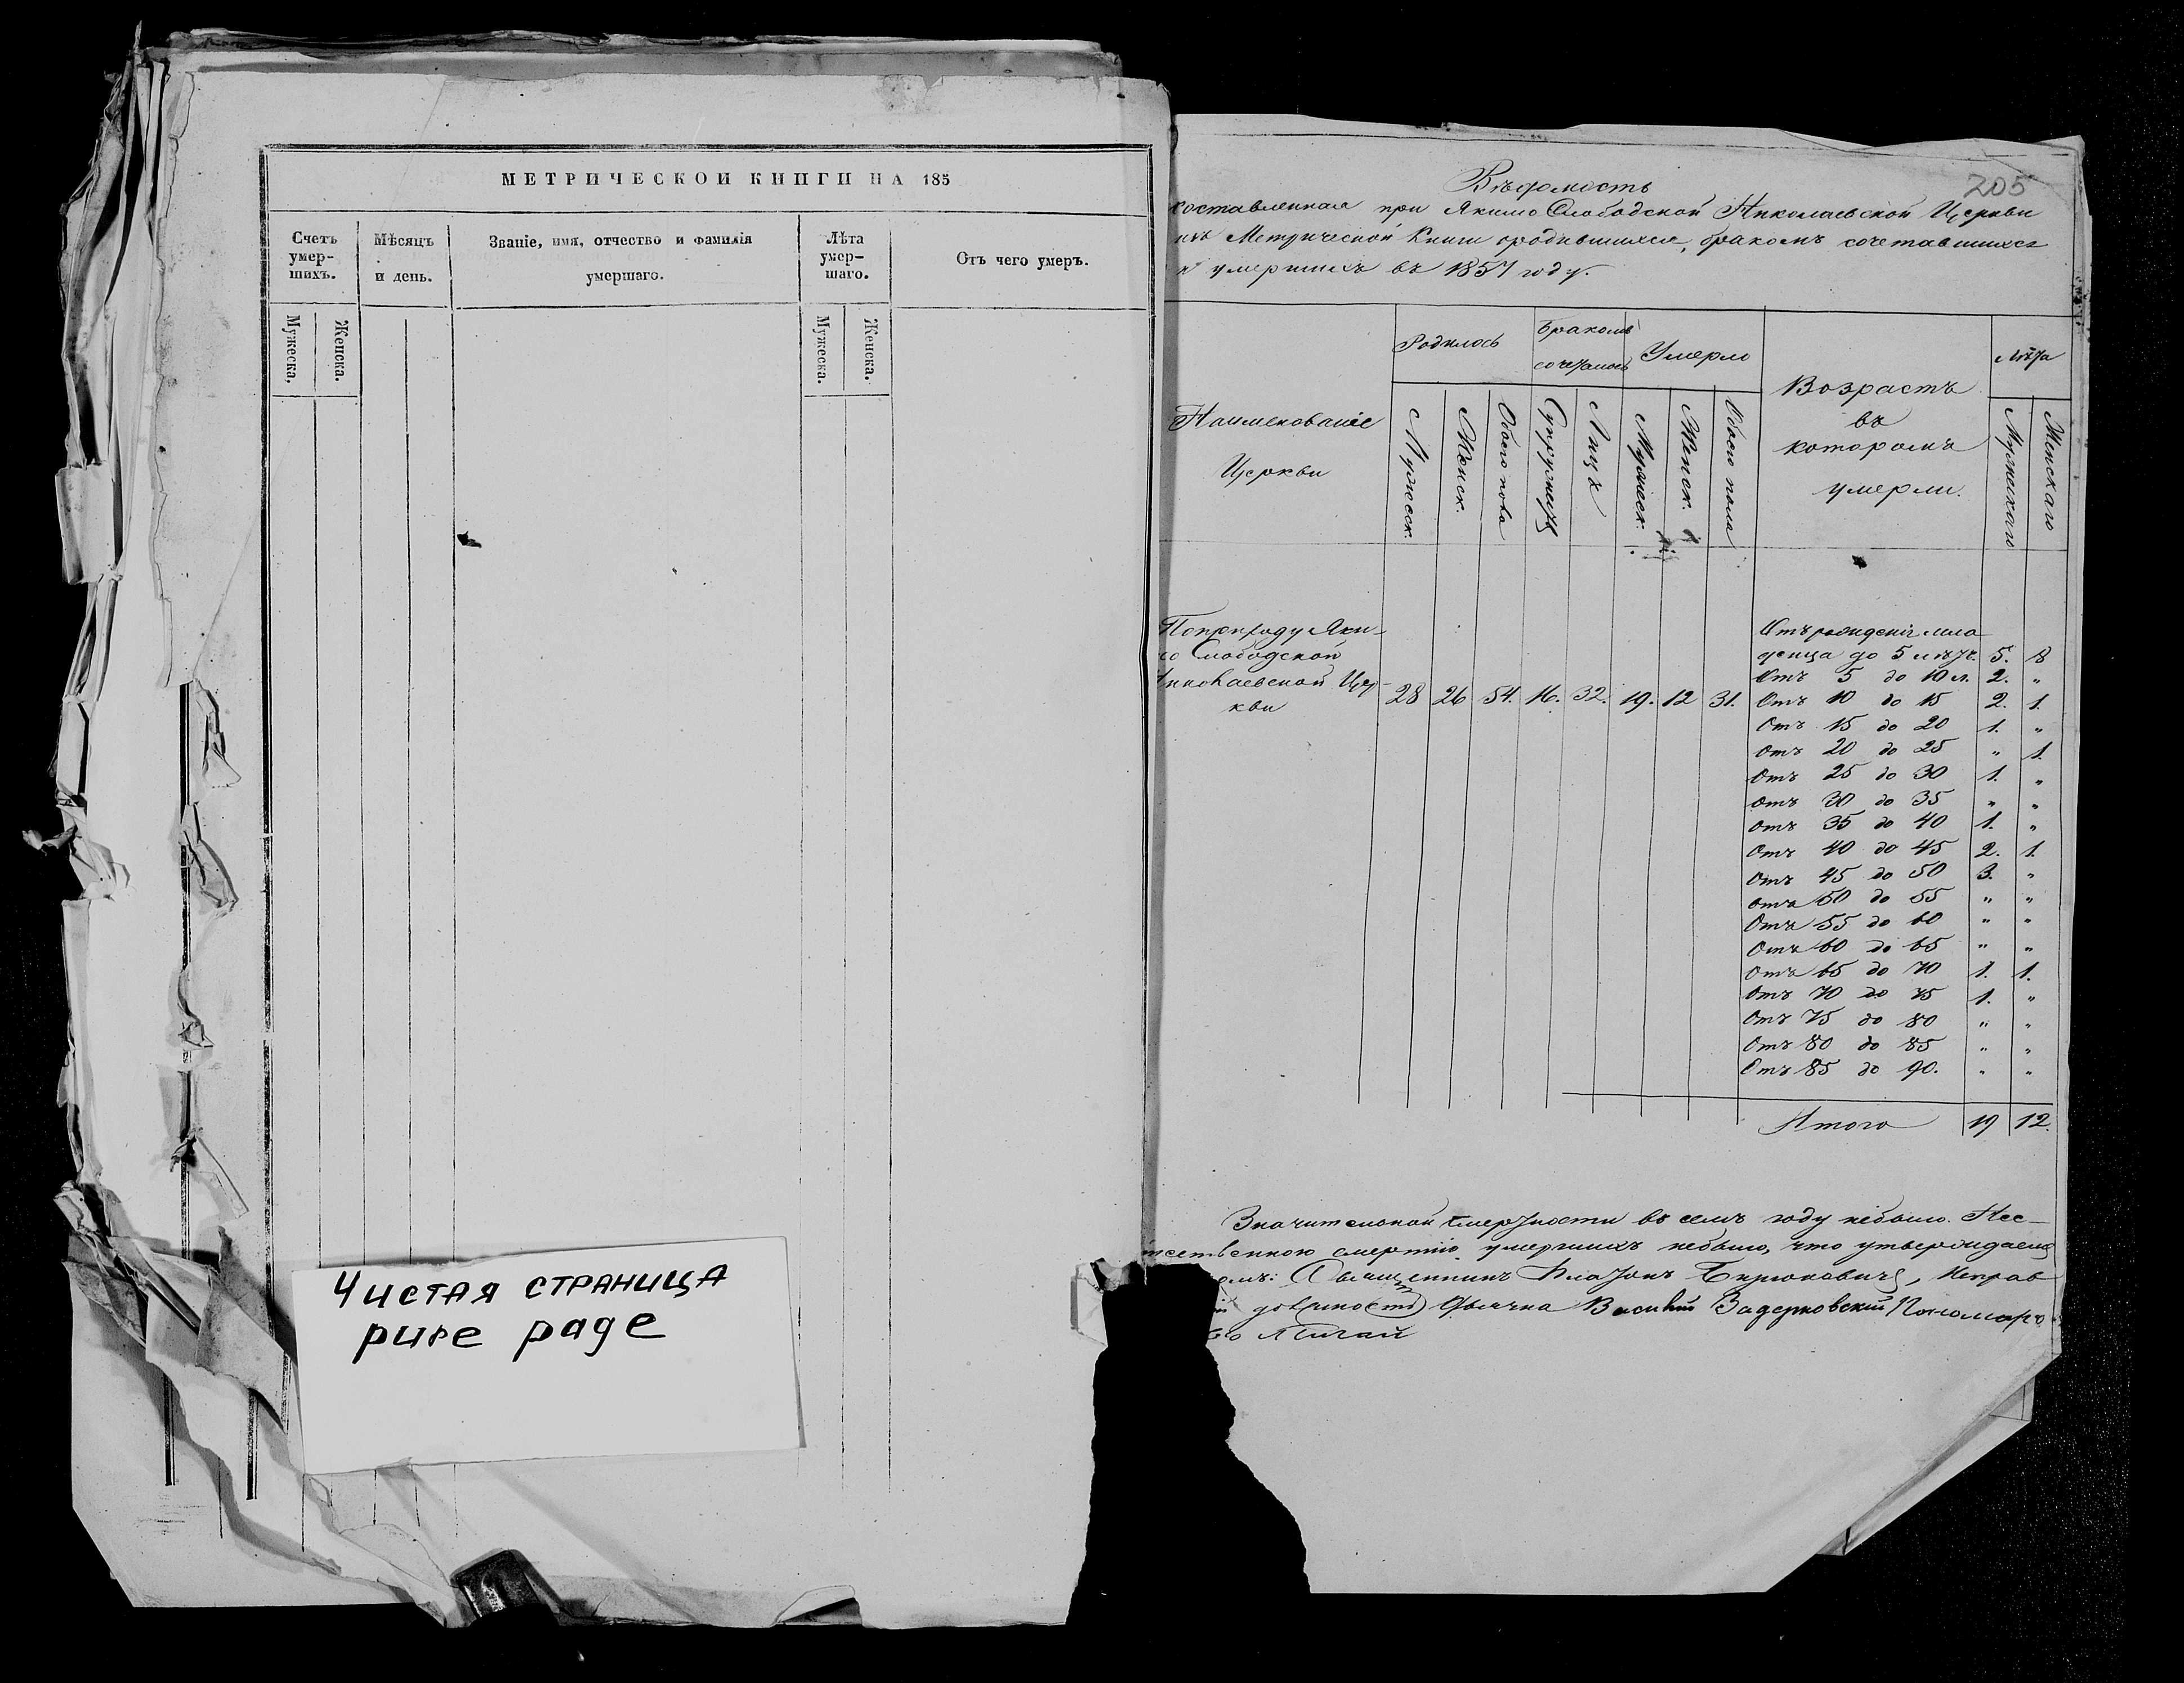 МЕТРИЧЕСКОИ КНИГИ НА 185
Счетъ умер-шихъ.
Мѣсяцъ и день.
Званіе, имя, отчество и фамилія умершаго.
Лѣта умер-шаго.
Отъ чего умеръ.
Мужеска.
Женска.
Мужеска.
Женска.
Чистая страница
pure page
205
Вѣдомость
составленная при Якимо Слободской Николаевской Церкви
изъ Метрической Книги родившихся, бракомъ сочетавшихся
и умершихъ въ 1857 году.
Наименованіе Церкви
Родилось
Бракомъ сочеталось
Умерло
Возрастъ въ которомъ умерли.
Лѣта
Мужеск.
Женск.
Обоего пола
Супружествъ
Лицъ
Мужеск.
Женск.
Обоего пола
Мужескаго
Женскаго
По приходу Яки-
Слободской
Николаевской Цер-
кви
28 26 54. 16. 32. 19. 12 31.
Отъ рожденія мла
денца до 5 лѣтъ. 5. 8
Отъ 5 до 10 л. 2. "
Отъ 10 до 15 2. 1.
Отъ 15 до 20 1. "
Отъ 20 до 25 " 1.
Отъ 25 до 30 1. "
Отъ 30 до 35 " "
Отъ 35 до 40 1. "
Отъ 40 до 45 2. 1.
Отъ 45 до 50 3. "
Отъ 50 до 55 " "
Отъ 55 до 60 " "
Отъ 60 до 65 " "
Отъ 65 до 70 1. 1.
Отъ 70 до 75 1. "
Отъ 75 до 80 " "
Отъ 80 до 85 " "
Отъ 85 до 90. " "
Итого 19 12.
Значительной смертности въ семъ году небыло. Нее-
тественною смертію умершихъ небыло, что утверждаемъ
Священникъ Платонъ Бирюковичъ, Исправ
должность Дьячка Василій Задерковский Пономарь